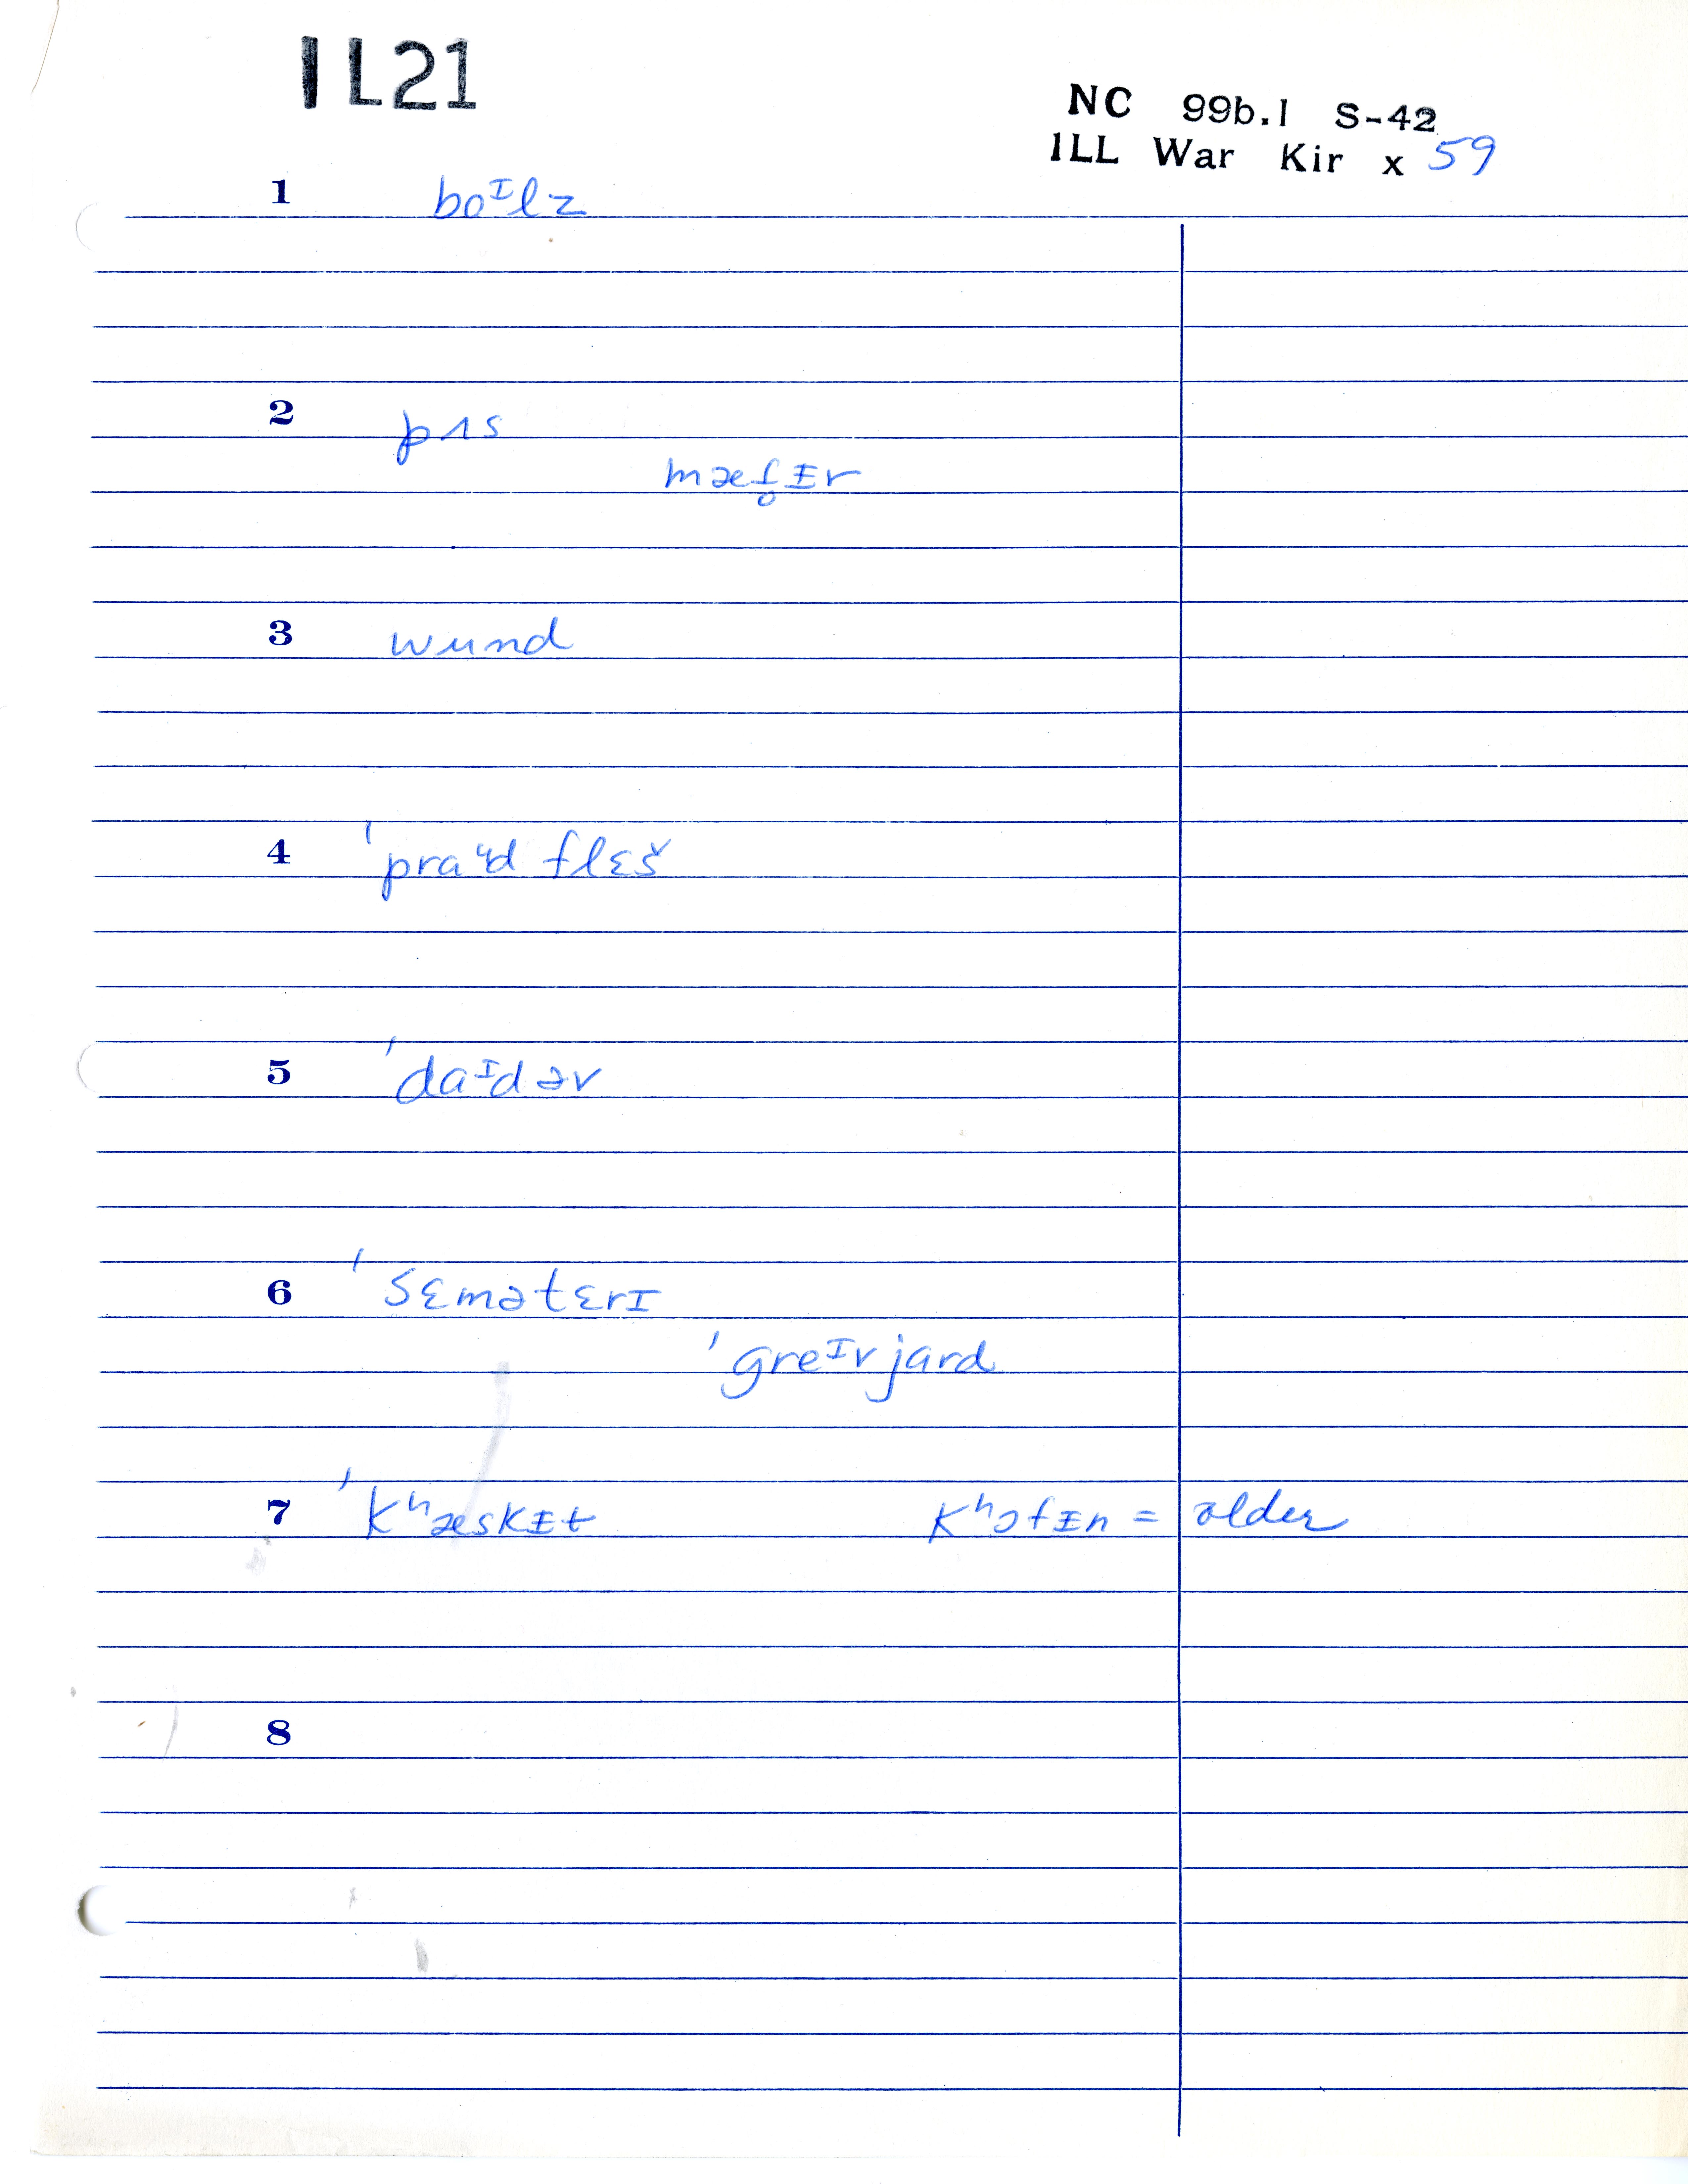 IL21
NC 99b.1 S-42
ILL War Kir x 59
1 boᴵlz
2 pʌs
mæf̥ɪr
3 wund
4 'praᶸd flɛš
5 'daᴵdəv
6 'sɛmətɛrɪ
'greᴵvjard
7 'kʰæskɪt kʰɔfɪn = older
8